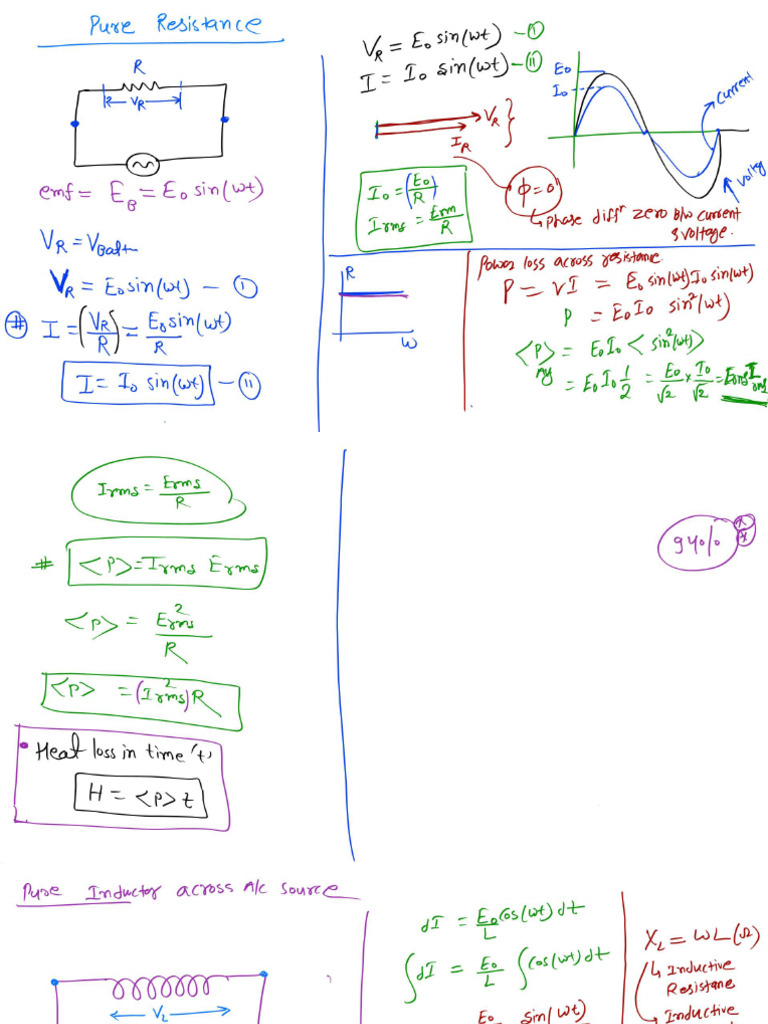 Pure Resistance
R
V_R
emf = E_B = E₀ sin(ωt)
V_R = V_Batt
V_R = E₀ sin(ωt) — (I)
# I = (V_R/R) = E₀ sin(ωt)/R
I = I₀ sin(ωt) — (II)
V_R = E₀ sin(ωt) — (I)
I = I₀ sin(ωt) — (II)
V_R
I_R
I₀ = (E₀/R)
Irms = Erm/R
ϕ = 0°
↳ Phase diffⁿ zero b/w current
& voltage.
E₀
I₀
current
R
ω
Power loss across resistance
P = VI = E₀ sin(ωt) I₀ sin(ωt)
P = E₀I₀ sin²(ωt)
<P> = E₀I₀ < sin²(ωt)>
= E₀I₀ 1/2 = E₀/√2 × I₀/√2 = Erms Irms
Irms = Erms/R
# <P> = Irms Erms
<P> = Erms²/R
<P> = (Irms)² R
• Heat loss in time 't'
H = <P> t
94%
Pure Inductor across A/c source
V_L
dI = E₀/L cos(ωt) dt
∫dI = E₀/L ∫cos(ωt) dt
E₀ sin(ωt)
X_L = ωL (Ω)
↳ Inductive
Resistane
→ Inductive